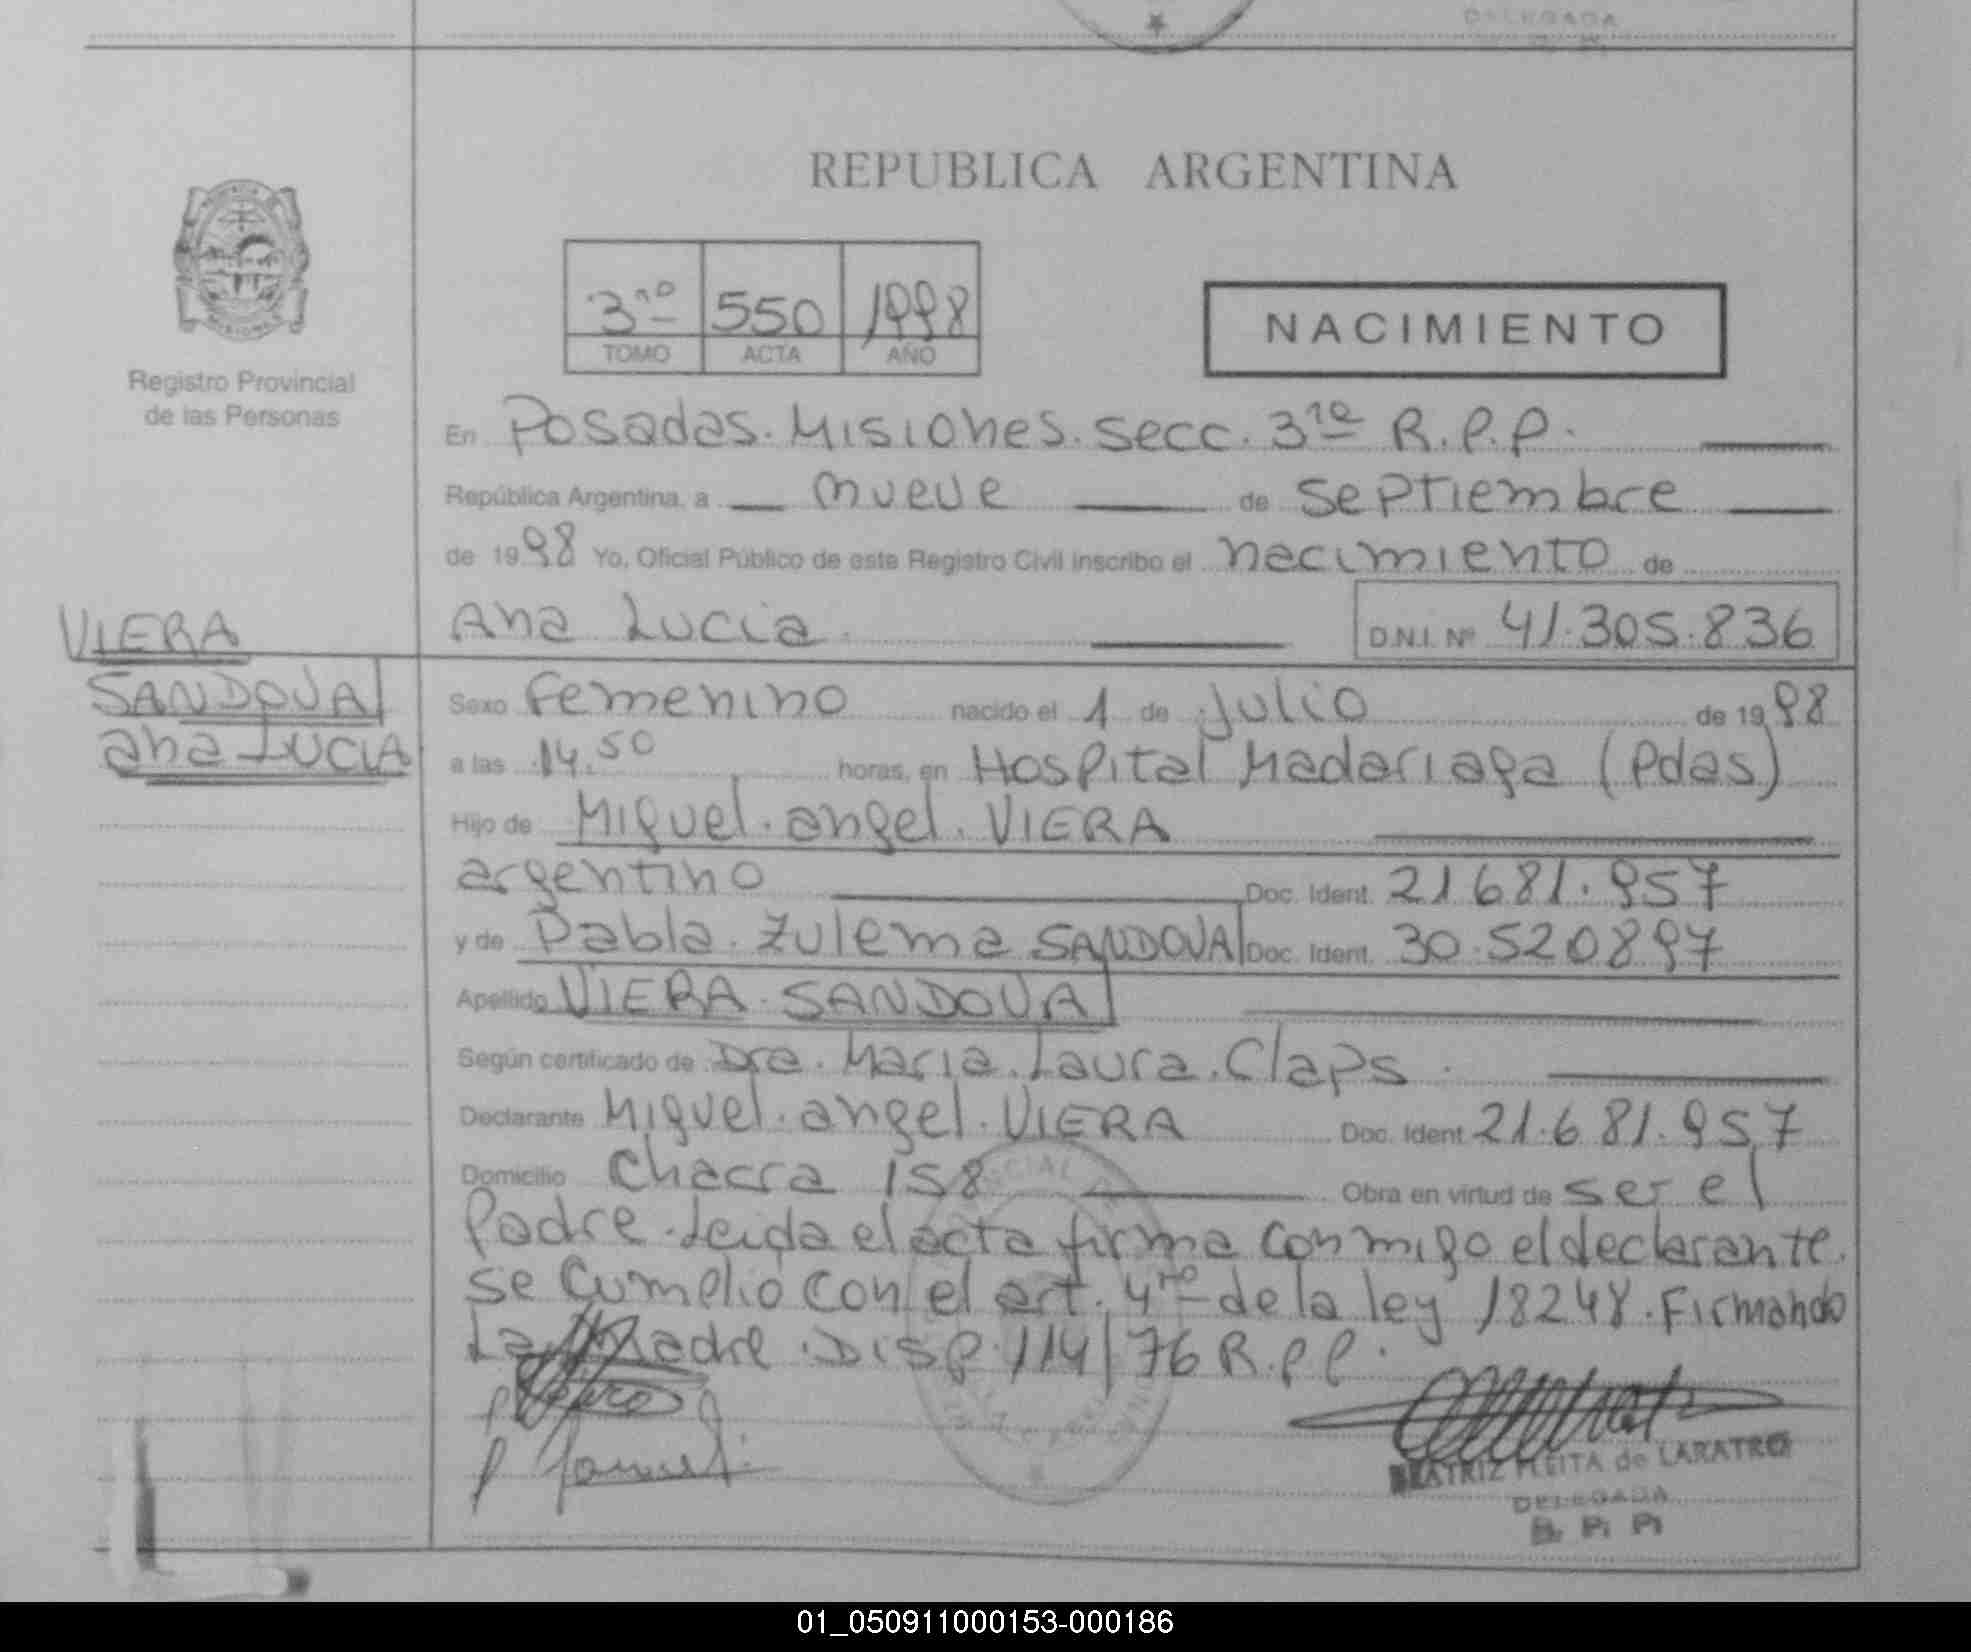 DELEGADA
REPUBLICA ARGENTINA
3ro 550 1998
TOMO ACTA AÑO
NACIMIENTO
Registro Provincial
de las Personas
En Posadas. Misiones. secc. 3ra R.P.P.
República Argentina, a nueve de septiembre
de 1998 Yo, Oficial Público de este Registro Civil inscribo el nacimiento de
Ana Lucia D.N.I. Nº 41.305.836
VIERA
SANDOVAl
ana LUCIA
Sexo femenino nacido el 1 de julio de 1998
a las 14.50 horas, en Hospital Madariaga (Pdas)
Hijo de Miguel. angel. VIERA
argentino Doc. Ident. 21.681.957
y de Pabla. Zulema SANDOVAl Doc. Ident. 30.520897
Apellido VIERA SANDOVAl
Según certificado de Dra. Maria. Laura. Claps.
Declarante Miguel. angel. VIERA Doc. Ident 21.681.957
Domicilio Chacra 158 Obra en virtud de ser el
Padre. Leida el acta firma conmigo el declarante.
se cumplio con el art. 4to de la ley 18248. Firmando
La Madre. Disp. 114/76 R.p.p.
BEATRIZ FLEITA de LARATRO
DELEGADA
R. P. P.
01_050911000153-000186